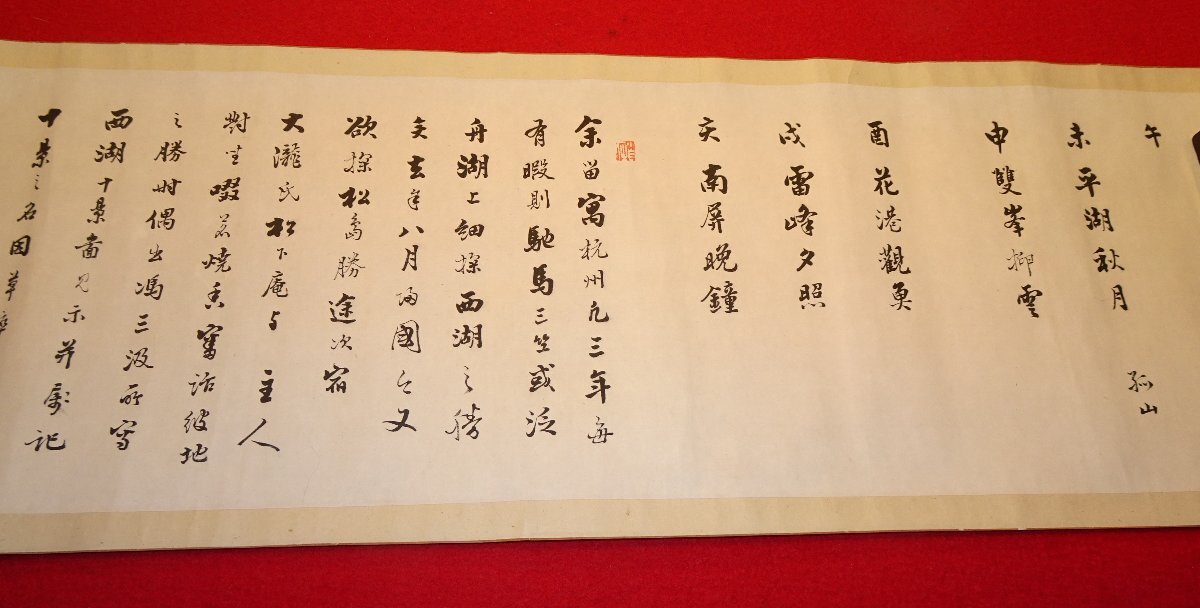 午 孤山
未 平湖秋月
申 雙峯挿雲
酉 花港觀魚
戌 雷峰夕照
亥 南屏晩鐘
余留寓杭州凡三年每
有暇則馳馬三竺或泛
舟湖上細探西湖之勝
矣去年八月歸國今又
欲探松島勝途次宿
大瀧氏松下庵与主人
對坐啜茗燒香審話彼地
之勝時偶出馮三汲所寫
西湖十景畵見示并属記
十景之名因草